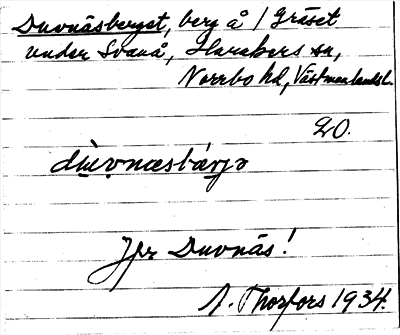 Duvnäsberget, berg å / Gräset
under Svanå, Harakers sn,
Norrbo hd, Västmanlandsl.
20.
dùvnæsbárjə
Jfr Duvnäs!
A. Thorfors 1934.